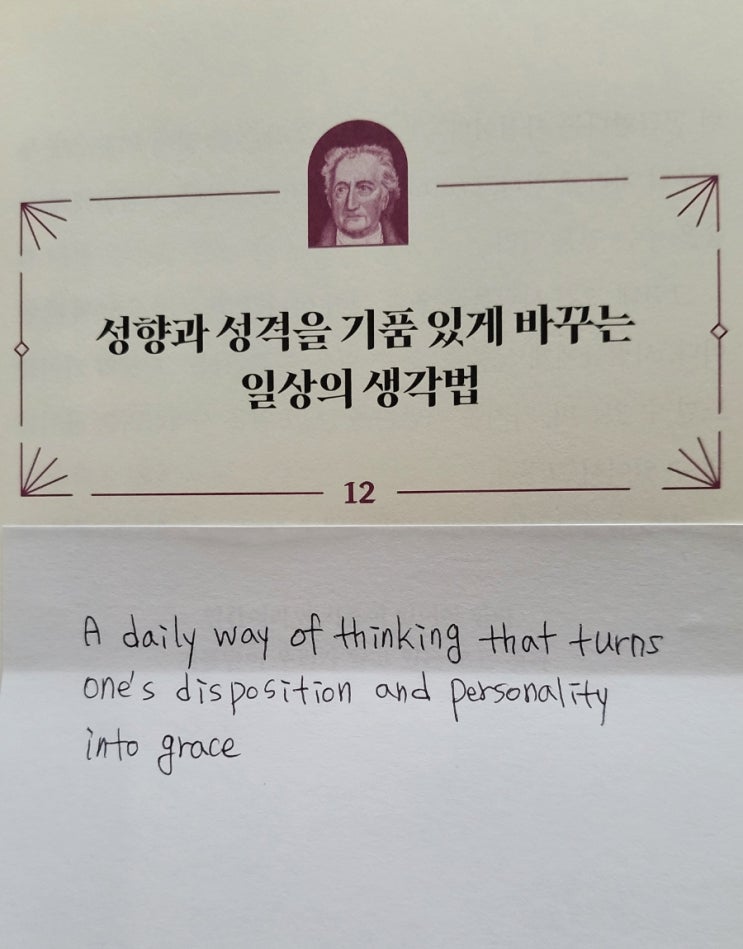 성향과 성격을 기품 있게 바꾸는
일상의 생각법
12
A daily way of thinking that turns
one's disposition and personality
into grace